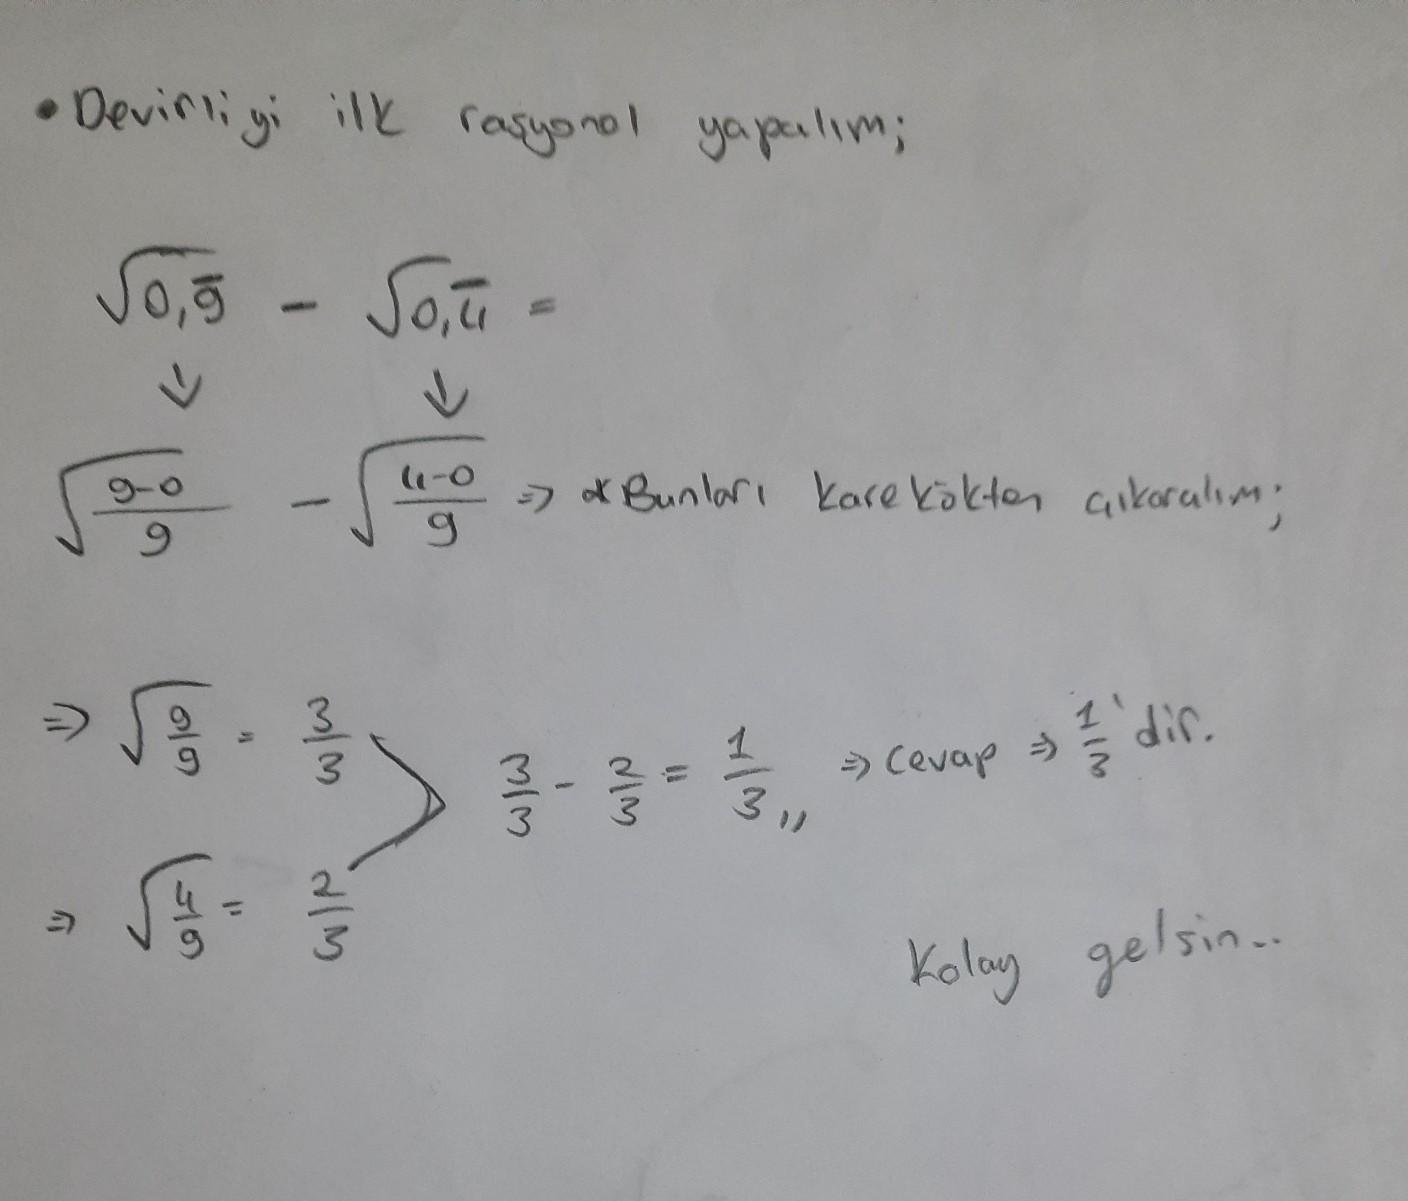 • Devirliyi ilk rasyonal yapalım;
√0,9̅ - √0,4̅ =
↓ ↓
√((9-0)/9) - √((4-0)/9) ⇒ * Bunları karekökten çıkaralım;
⇒ √(9/9) = 3/3
3/3 - 2/3 = 1/3 ,, ⇒ Cevap ⇒ 1/3'dir.
⇒ √(4/9) = 2/3
Kolay gelsin..